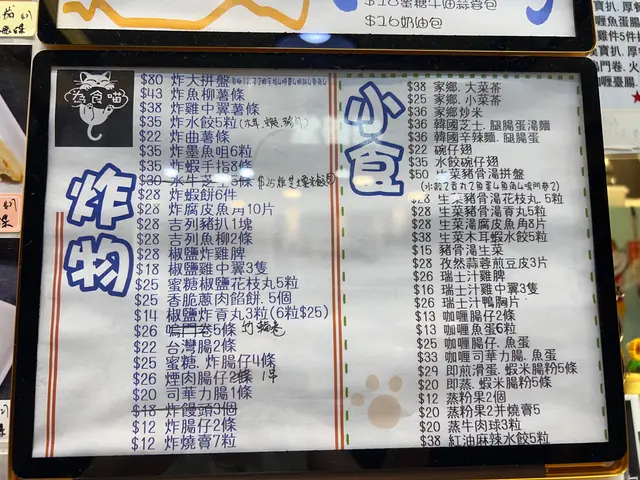 $16奶油包
為食喵
炸物
$80 炸大拼盤
$43 炸魚柳薯條
$38 炸雞中翼薯條
$35 炸水餃5粒
$22 炸曲薯條
$35 炸墨魚咀6粒
$35 炸蝦手指8條
$28 炸蝦餅6件
$28 炸腐皮魚角10片
$28 吉列豬扒1塊
$28 吉列魚柳2條
$28 椒鹽炸雞脾
$18 椒鹽雞中翼3隻
$25 蜜糖椒鹽花枝丸5粒
$25 香脆蔥肉餡餅. 5個
$14 椒鹽炸貢丸3粒(6粒$25)
$26 鳴門卷5條
$22 台灣腸2條
$25 蜜糖. 炸腸仔4條
$26 煙肉腸仔2條
$20 司華力腸1條
$18 炸饅頭3個
$12 炸腸仔2條
$12 炸燒賣7粒
小食
$38 家鄉. 大菜茶
$25 家鄉. 小菜茶
$36 家鄉炒米
$36 韓國芝士. 腿腸蛋湯麵
$36 韓國辛辣麵. 腿腸蛋
$22 碗仔翅
$35 水餃碗仔翅
$50 生菜豬骨湯拼盤
$28 生菜豬骨湯花枝丸. 5粒
$28 生菜豬骨湯貢丸5粒
$28 生菜湯腐皮魚角8片
$38 生菜木耳蝦水餃5粒
$15 豬骨湯生菜
$28 孜然蒜蓉煎豆皮3片
$26 瑞士汁雞脾
$16 瑞士汁雞中翼3隻
$26 瑞士汁鴨胸片
$13 咖喱腸仔2條
$13 咖喱魚蛋6粒
$25 咖喱腸仔. 魚蛋
$33 咖喱司華力腸. 魚蛋
$29 即煎滑蛋. 蝦米腸粉5條
$20 即蒸. 蝦米腸粉5條
$12 蒸粉果2個
$20 蒸粉果2并燒賣5
$20 蒸牛肉球3粒
$38 紅油麻辣水餃5粒